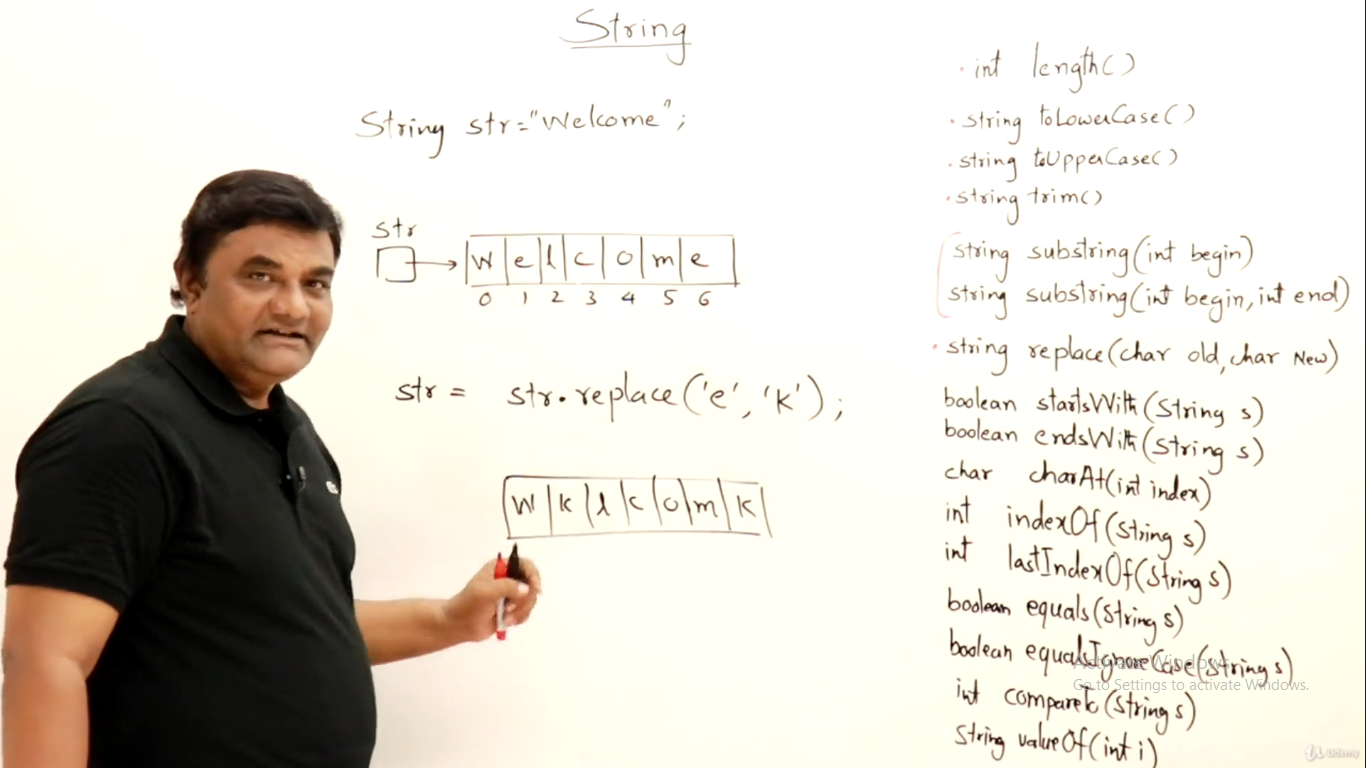 String
String str="Welcome";
str
W e l c o m e
0 1 2 3 4 5 6
str = str.replace('e', 'k');
W k l c o m k
int length()
string toLowerCase()
string toUpperCase()
string trim()
string substring(int begin)
string substring(int begin, int end)
string replace(char old, char New)
boolean startsWith(String s)
boolean endsWith(String s)
char charAt(int index)
int indexOf(String s)
int lastIndexOf(String s)
boolean equals(String s)
boolean equalsIgnoreCase(String s)
int compareTo(String s)
String valueOf(int i)
Activate Windows
Go to Settings to activate Windows.
Udemy